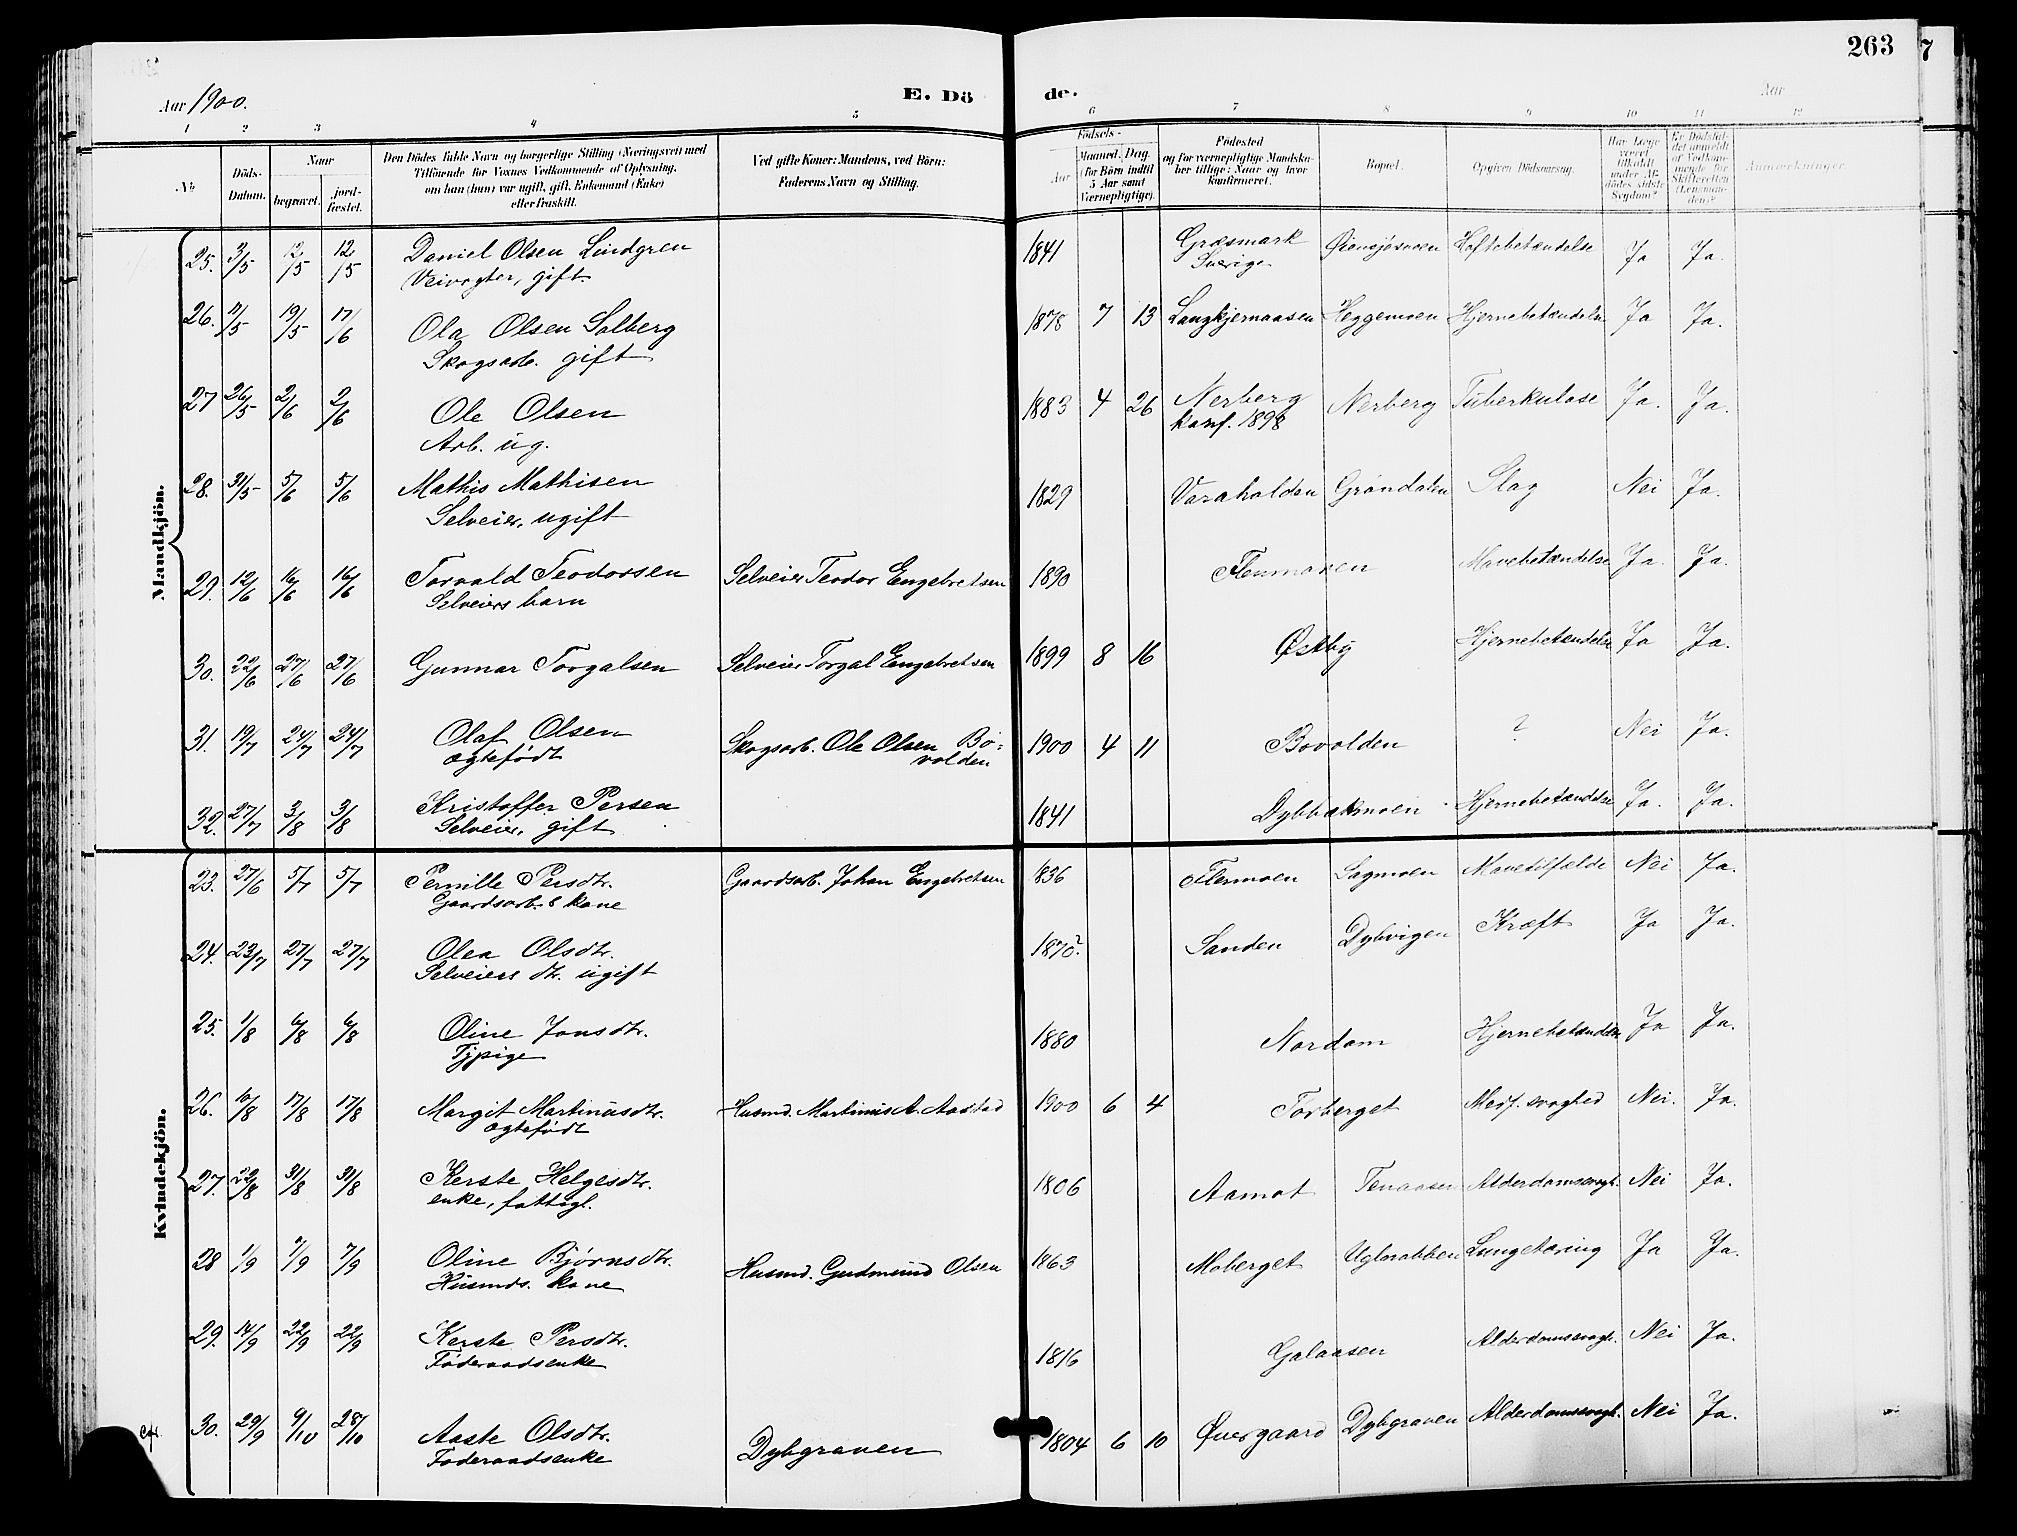 263
7
Aar 1900.
E. Dö de.
Aar
1 2 3 4 5 6 7 8 9 10 11 12
№
Döds-Datum.
Naar
begravet.
jord-fæstet.
Den Dödes fulde Navn og borgerlige Stilling (Næringsvei) med
Tilföiende for Voxnes Vedkommende af Oplysning,
om han (hun) var ugift, gift, Enkemand (Enke)
eller fraskilt.
Ved gifte Koner: Mandens, ved Börn:
Faderens Navn og Stilling.
Födsels-
Aar
Maaned. Dag.
(for Börn indtil
5 Aar samt
Værnepligtige).
Födested
og for værnepligtige Mandska-
ber tillige: Naar og hvor
konfirmeret.
Bopæl.
Opgiven Dödsaarsag.
Har Læge
været
tilkaldt
under Af-
dödes sidste
Sygdom?
Er Dödsfal-
det anmeldt
af Vedkom-
mende for
Skifteretten
(Lensman-
den)?
Anmærkninger.
Mandkjön.
25. 3/5 12/5 12/5 Daniel Olsen Lindgren 1841 Græsmark Øiensjøsmoen Hoftebetændelse Ja Ja.
Veivogter, gift. Sverige
26. 11/5 19/5 17/6 Ola Olsen Solberg 1878 7 13 Langkjernaasen Heggemoen Hjernebetændelse Ja Ja.
Skogsarb. gift
27 26/5 2/6 2/6 Ole Olsen 1883 4 26 Nerberg Nerberg Tuberkulose Ja. Ja.
Arb. ug. konf. 1898
28. 31/5 5/6 5/6 Mathis Mathisen 1829 Varaholden Grøndalen Slag Nei Ja.
Selveier, ugift
29. 12/6 16/6 16/6 Torvald Teodorsen Selveier Teodor Engebretsen 1890 Flermoen Mavebetændelse Ja. Ja.
Selveiers barn
30. 22/6 27/6 27/6 Gunnar Torgalsen Selveier Torgal Engebretsen 1899 8 16 Østby Hjernebetændelse Ja Ja.
31. 19/7 24/7 24/7 Olaf Olsen Skogsarb. Ole Olsen Bo- 1900 4 11 Bovolden ? Nei Ja.
ægtefødt volden
32. 27/7 3/8 3/8 Kristoffer Persen 1841 Dybbakmoen Hjernebetændelse Ja. Ja.
Selveier, gift
Kvindekjön.
23. 27/6 5/7 5/7 Pernille Persdtr. Gaardsarb. Johan Engebretsen 1836 Flermoen Sagmoen Mavetilfælde Nei Ja.
Gaardsarb.s kone
24. 23/7 27/7 27/7 Olea Olsdtr. 1870? Sanden Dybvigen Kræft Ja Ja.
Selveiers dtr. ugift
25. 1/8 6/8 6/8 Oline Jonsdtr. 1880 Nordom Hjernebetændelse Ja Ja.
Tjpige
26. 10/8 17/8 17/8 Margit Martinusdtr. Husmd. Martinus A. Aastad 1900 6 4 Torberget Medf. svaghed Nei. Ja.
ægtefødt
27. 22/8 31/8 31/8 Kerste Helgesdtr. 1806 Aamot Tenaasen Alderdomssvagh. Nei Ja.
enke, fattigl.
28 1/9 7/9 7/9 Oline Bjørnsdtr. Husmd. Gudmund Olsen 1863 Moberget Uglnabben Lungetæring Ja Ja.
Husmds. kone
29. 14/9 22/9 22/9 Kerste Persdtr. 1816 Galaasen Alderdomssvagh. Nei Ja.
Føderaadsenke
30. 29/9 9/10 28/10 Aaste Olsdtr. Dybgraven 1804 6 10 Øvergaard Dybgraven Alderdomssvagh. Nei Ja.
Føderaadsenke